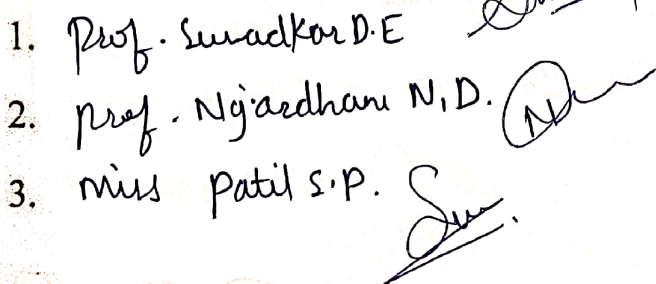 1. Prof. Surradkar D.E
2. Prof. Nyaydhani N.D.
3. Miss Patil S.P.